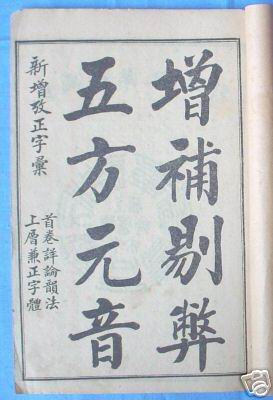 增補剔弊
五方元音
新增攷正字彙
首卷詳論韻法
上層兼正字體
ebay